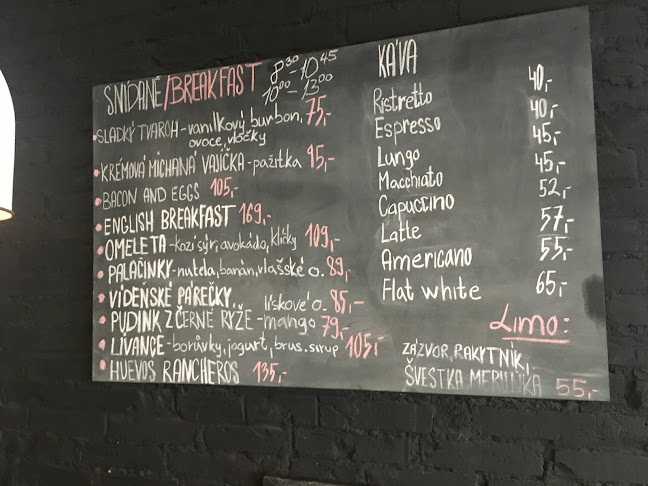 SNÍDANĚ/BREAKFAST 8³⁰-10⁴⁵
10⁰⁰-13⁰⁰
SLADKÝ TVAROH-vanilkový burbon, 75,-
ovoce, vločky
KRÉMOVÁ MÍCHANÁ VAJÍČKA-pažitka 95,-
BACON AND EGGS 105,-
ENGLISH BREAKFAST 169,-
OMELETA-kozí sýr, avokádo, klíčky 109,-
PALAČINKY-nutela, banán, vlašské o. 89,-
VÍDEŇSKÉ PÁREČKY, lískové o. 85,-
PUDINK Z ČERNÉ RÝŽE-mango 79,-
LÍVANCE-borůvky, jogurt, brus. sirup 105,-
HUEVOS RANCHEROS 135,-
KÁVA
Ristretto 40,-
Espresso 40,-
Lungo 45,-
Macchiato 45,-
Capuccino 52,-
Latte 57,-
Americano 55,-
Flat white 65,-
Limo:
ZÁZVOR, RAKYTNÍK,
ŠVESTKA, MERUŇKA 55,-